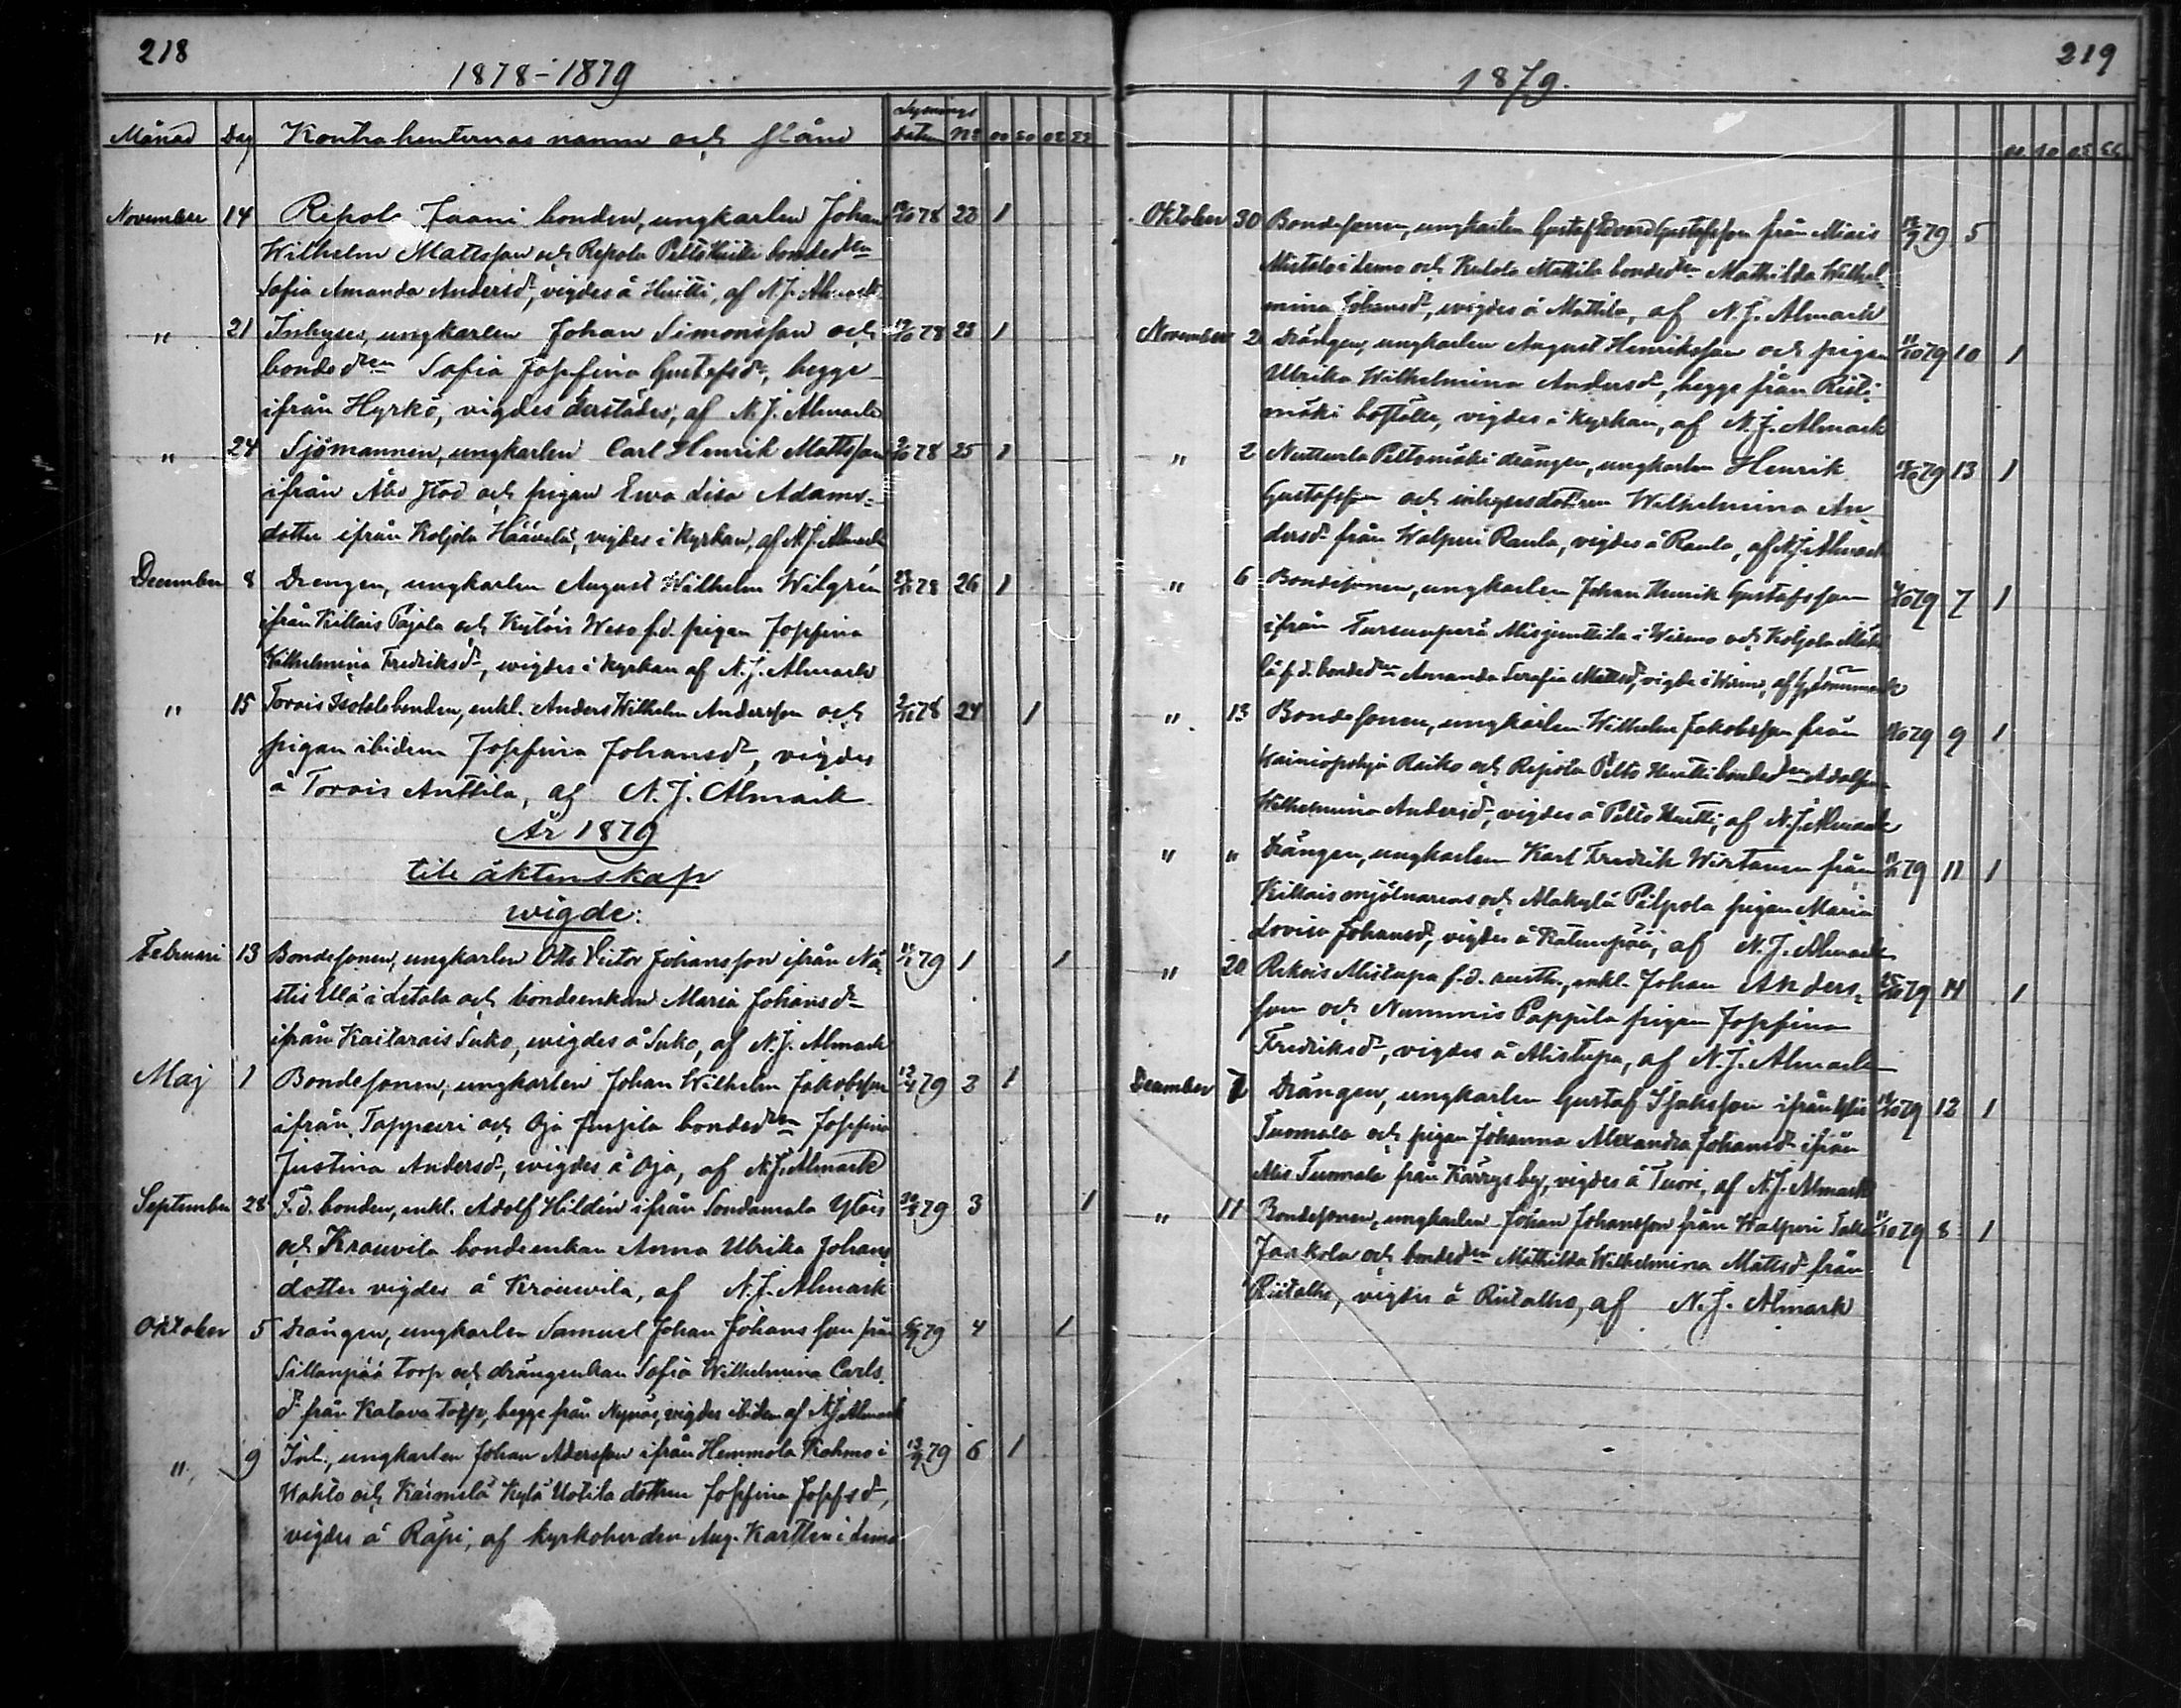 218
1878-1879
Månad Dag Kontrahenternas namn och stånd Lysnings Datum No 00 03 30 33
November 14 Repola Jaani bonden, ungkarlen Johan 78 22 1
Wilhelm Mattsson och Repola Pelto Huitti bondedtrn
Sofia Amanda Andersdr, vigdes å Huitti, af N. J. Almark
" 21 Inhyses, ungkarlen Johan Simonsson och 78 23 1
bondedtrn Sofia Josefina Gustafsdr, begge
ifrån Hyrkö, vigdes derstädes, af N. J. Almark
" 24 Sjömannen, ungkarlen Carl Henrik Mattsson 78 25 1
ifrån Åbo stad och pigan Ewa Lisa Adams-
dotter ifrån Koljola Häävelä, vigdes i kyrkan, af N. J. Almark
December 8 Drengen, ungkarlen August Wilhelm Wilgrén 78 26 1
ifrån Killais Pajala och Kytöis Weso f.d. pigan Josefina
Wilhelmina Fredriksdr, wigdes i kyrkan af N. J. Almark
" 15 Torais Isotalo bonden, enkl. Anders Wilhelm Andersson och 78 24 1
pigan ibidem Josefina Johansdr, vigdes
å Torois Anttila, af N. J. Almark
År 1879
till äktenskap
wigde:
Februari 13 Bondesonen, ungkarlen Otto Victor Johansson ifrån Nä-
79 1 1
stis Ullä i Letala och bondeenkan Maria Johansdr
ifrån Kaitarais Suko, wigdes å Suko, af N. J. Almark
Maj 1 Bondesonen, ungkarlen Johan Wilhelm Jakobsson 79 2 1
ifrån Tappuri och Oja bondedtrn Josefina
Justina Andersdr, wigdes å Oja, af N. J. Almark
September 28 F.d. bonden, enkl. Adolf Hildén ifrån Sondamala Ytöis 79 3 1
och Krouvila bondeenkan Anna Ulrika Johans
dotter vigdes å Krouwila, af N. J. Almark
Oktober 5 Drängen, ungkarlen Samuel Johan Johansson från 79 4 1
Sillanpää torp och drängenkan Sofia Wilhelmina Carls
dr från Katava torp, begge från Nynäs, vigdes ibidem af N. J. Almark
" 9 Inh., ungkarlen Johan Adersson ifrån Hemmola Kahmo i 79 6 1
Wahto och Karmela Kylä Uotila dottren Josefina Josefsdr,
vigdes å Räpi, af kyrkoherden Aug. Karsten i Lemo
219
1879.
Oktober 30 Bondesonen, ungkarlen Gustaf Edvard Gustafsson från Miais 79 5
Mistola i Lemo och Kulola Mattila bondedtrn Mathilda Wilhel-
mina Johansdr, wigdes å Mattila, af N. J. Almark
November 2 Drängen, ungkarlen August Henriksson och pigan 79 10 1
Ulrika Wilhelmina Andersdr, begge från Risti
mäki boställe, vigdes i kyrkan, af N. J. Almark
" 2 Nutturla Peltomäki drängen, ungkarlen Henrik 79 13 1
Gustafsson och inhysesdottren Wilhelmina An-
dersdr från Walperi Raula, vigdes å Raula, af N. J. Almark
" 6 Bondesonen, ungkarlen Johan Henrik Gustafsson 79 7 1
ifrån Tursunperä Misjunttila i Wirmo och Koljola
f.d. bondedtrn Amanda Serafia Mattsdr, vigde i Wirmo, af
" 13 Bondesonen, ungkarlen Wilhelm Jakobsson från 79 9 1
Kainiopohja Raiko och Repola Pelto Huitti bondedtrn Adolfina
Wilhelmina Andersdr, vigdes å Pelto Huitti, af N. J. Almark
" " Drängen, ungkarlen Karl Fredrik Wirtanen från 79 11 1
Killais mjölnarens och Alakylä Pilpola pigan Maria
Lovisa Johansdr, vigdes å, af N. J. Almark
" 20 Rekois Mistupa f.d. rustb., enkl. Johan Anders- 79 14 1
son och Nummis Pappila pigan Josefina
Fredriksdr, vigdes å Mistupa, af N. J. Almark
December 7 Drängen, ungkarlen Gustaf Isaksson ifrån 79 12 1
Tuomala och pigan Johanna Alexandra Johansdr ifrån
Alis Tuomala från Karrys by, vigdes å Tuori, af N. J. Almark
" 11 Bondesonen, ungkarlen Johan Johansson från Walperi 79 8 1
Jaakola och bondedtrn Mathilda Wilhelmina Mattsdr från
Riitalho, vigdes å Riitalho, af N. J. Almark